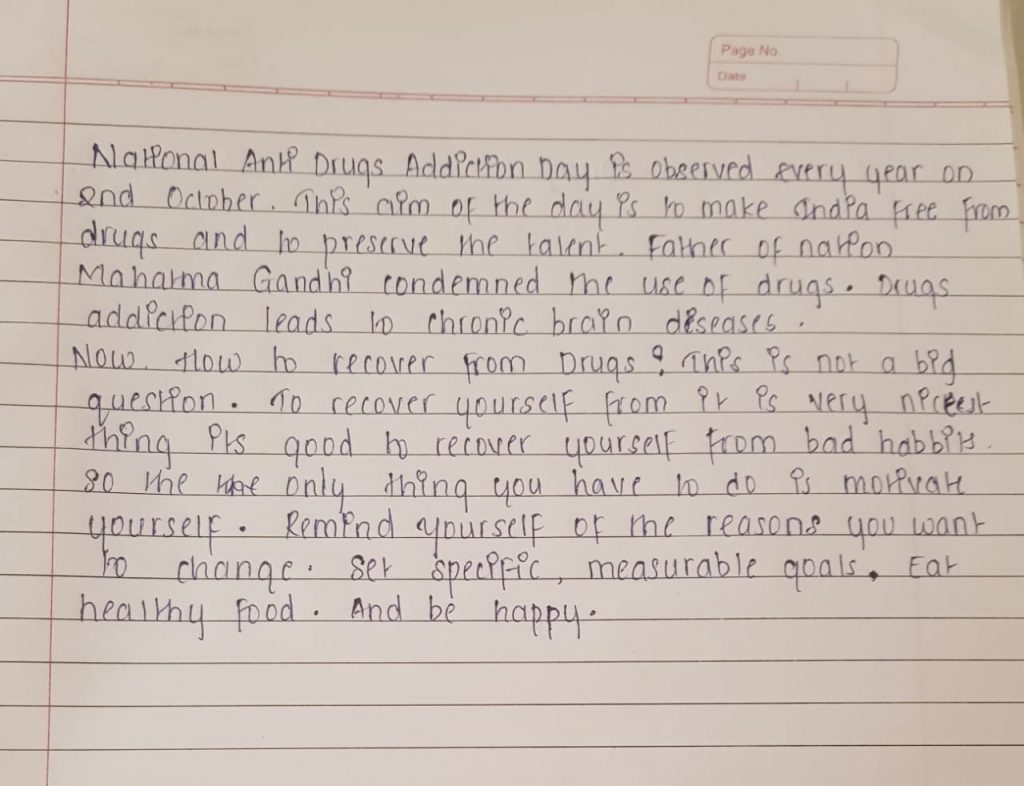 Page No.
Date
National Anti Drugs Addiction Day is observed every year on
2nd October. This aim of the day is to make India free from
drugs and to preserve the talent. Father of nation
Mahatma Gandhi condemned the use of drugs. Drugs
addiction leads to chronic brain diseases.
Now. How to recover from Drugs? This is not a big
question. To recover yourself from it is very nicest
thing its good to recover yourself from bad habbits.
so the only thing you have to do is motivate
yourself. Remind yourself of the reasons you want
to change. Set specific, measurable goals. Eat
healthy food. And be happy.